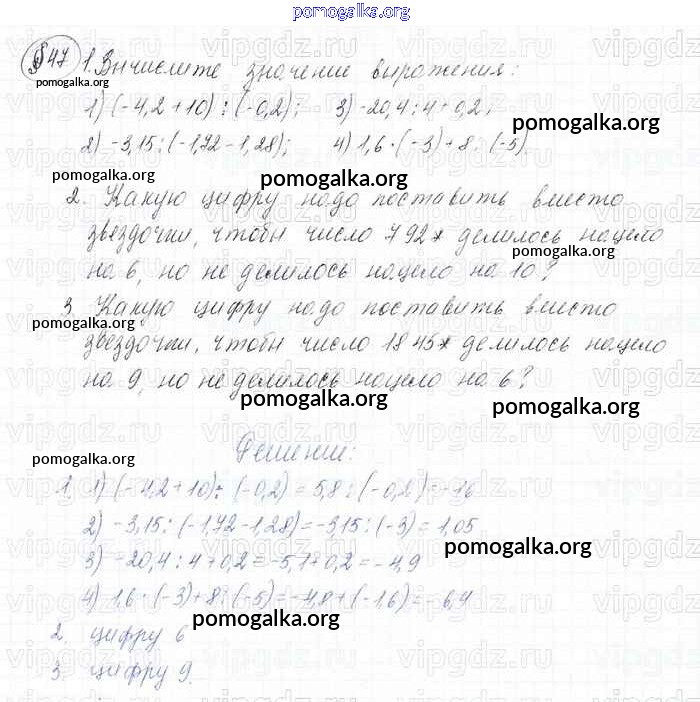 pomogalka.org
§47 1. Вычислите значение выражения:
pomogalka.org
1) (-4,2+10) : (-0,2); 3) -20,4 : 4 + 0,2;
pomogalka.org
2) -3,15 : (-1,72 - 1,28); 4) 1,6 · (-3) + 8 : (-5).
pomogalka.org pomogalka.org
2. Какую цифру надо поставить вместо
звёздочки, чтобы число 792* делилось нацело
pomogalka.org
на 6, но не делилось нацело на 10?
3. Какую цифру надо поставить вместо
pomogalka.org
звёздочки, чтобы число 1845* делилось нацело
на 9, но не делилось нацело на 6?
pomogalka.org pomogalka.org
Решение:
pomogalka.org
1. 1) (-4,2+10) : (-0,2) = 5,8 : (-0,2) =
2) -3,15 : (-1,72-1,28) = -3,15 : (-3) = 1,05
pomogalka.org
3) -20,4 : 4 + 0,2 = -5,1 + 0,2 = -4,9
4) 1,6 · (-3) + 8 : (-5) = -4,8 + (-1,6) = -6,4
pomogalka.org
2. цифру 6
3. цифру 9.
vipgdz.ru